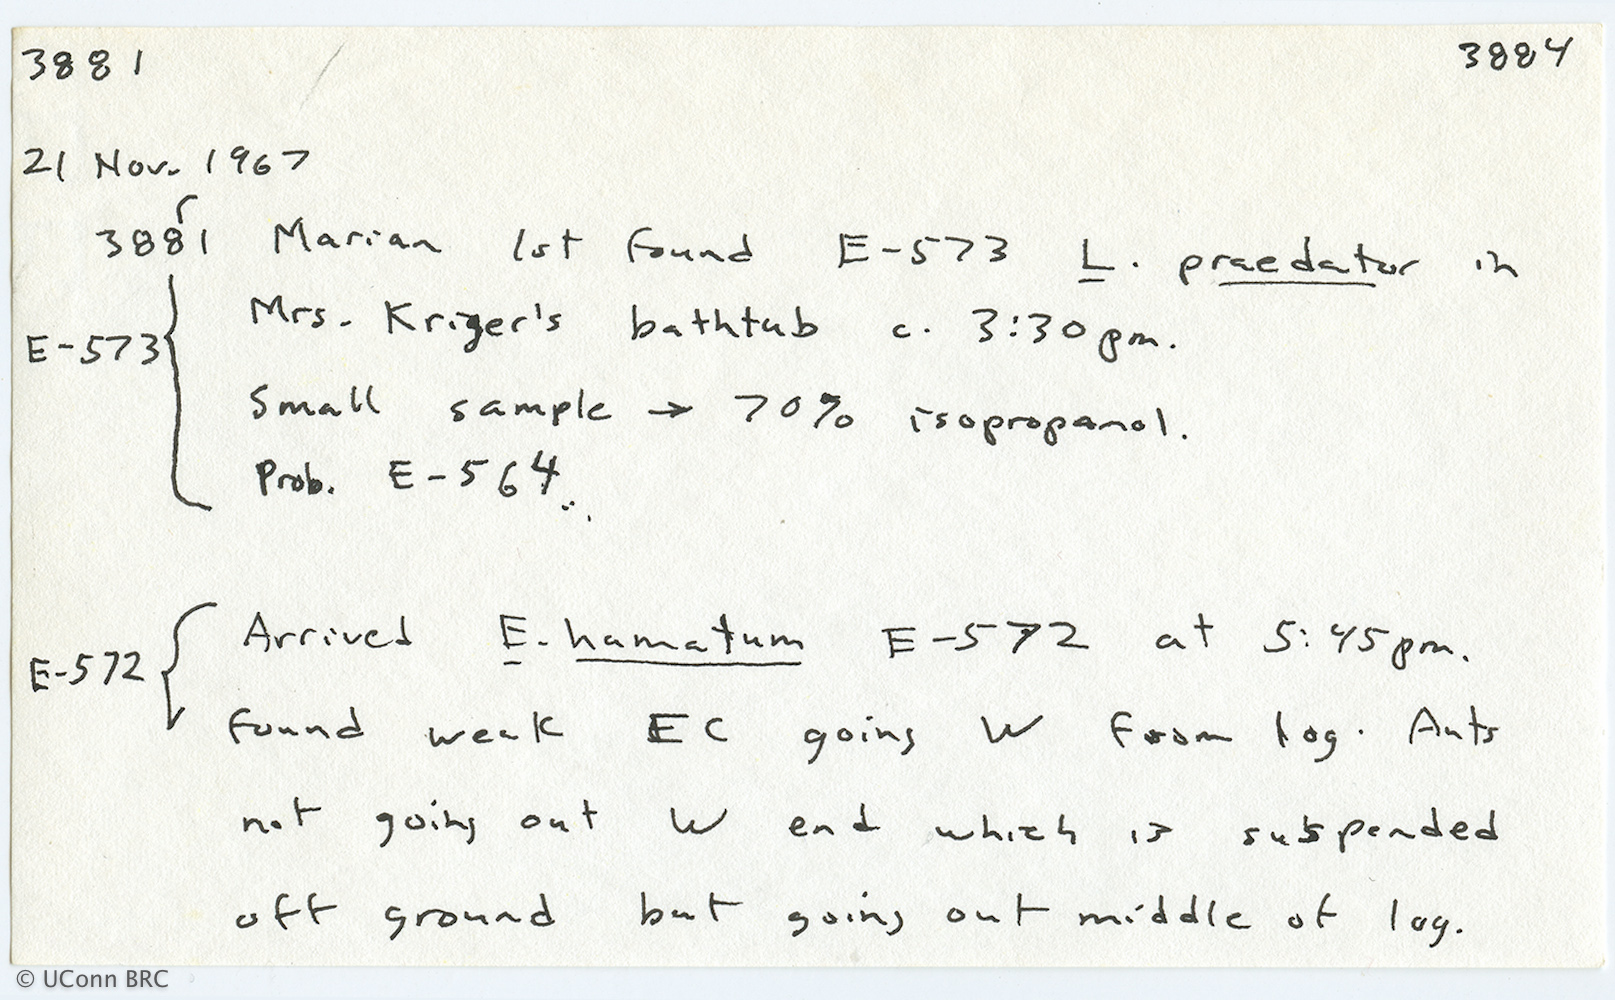 3881 3884
21 Nov. 1967
3881 Marian 1st found E-573 L. praedator in
Mrs. Kriger's bathtub c. 3:30 pm.
E-573
Small sample → 70% isopropanol.
Prob. E-564.
Arrived E. hamatum E-572 at 5:45 pm.
E-572
Found weak EC going W from log. Ants
not going out W end which is suspended
off ground but going out middle of log.
© UConn BRC